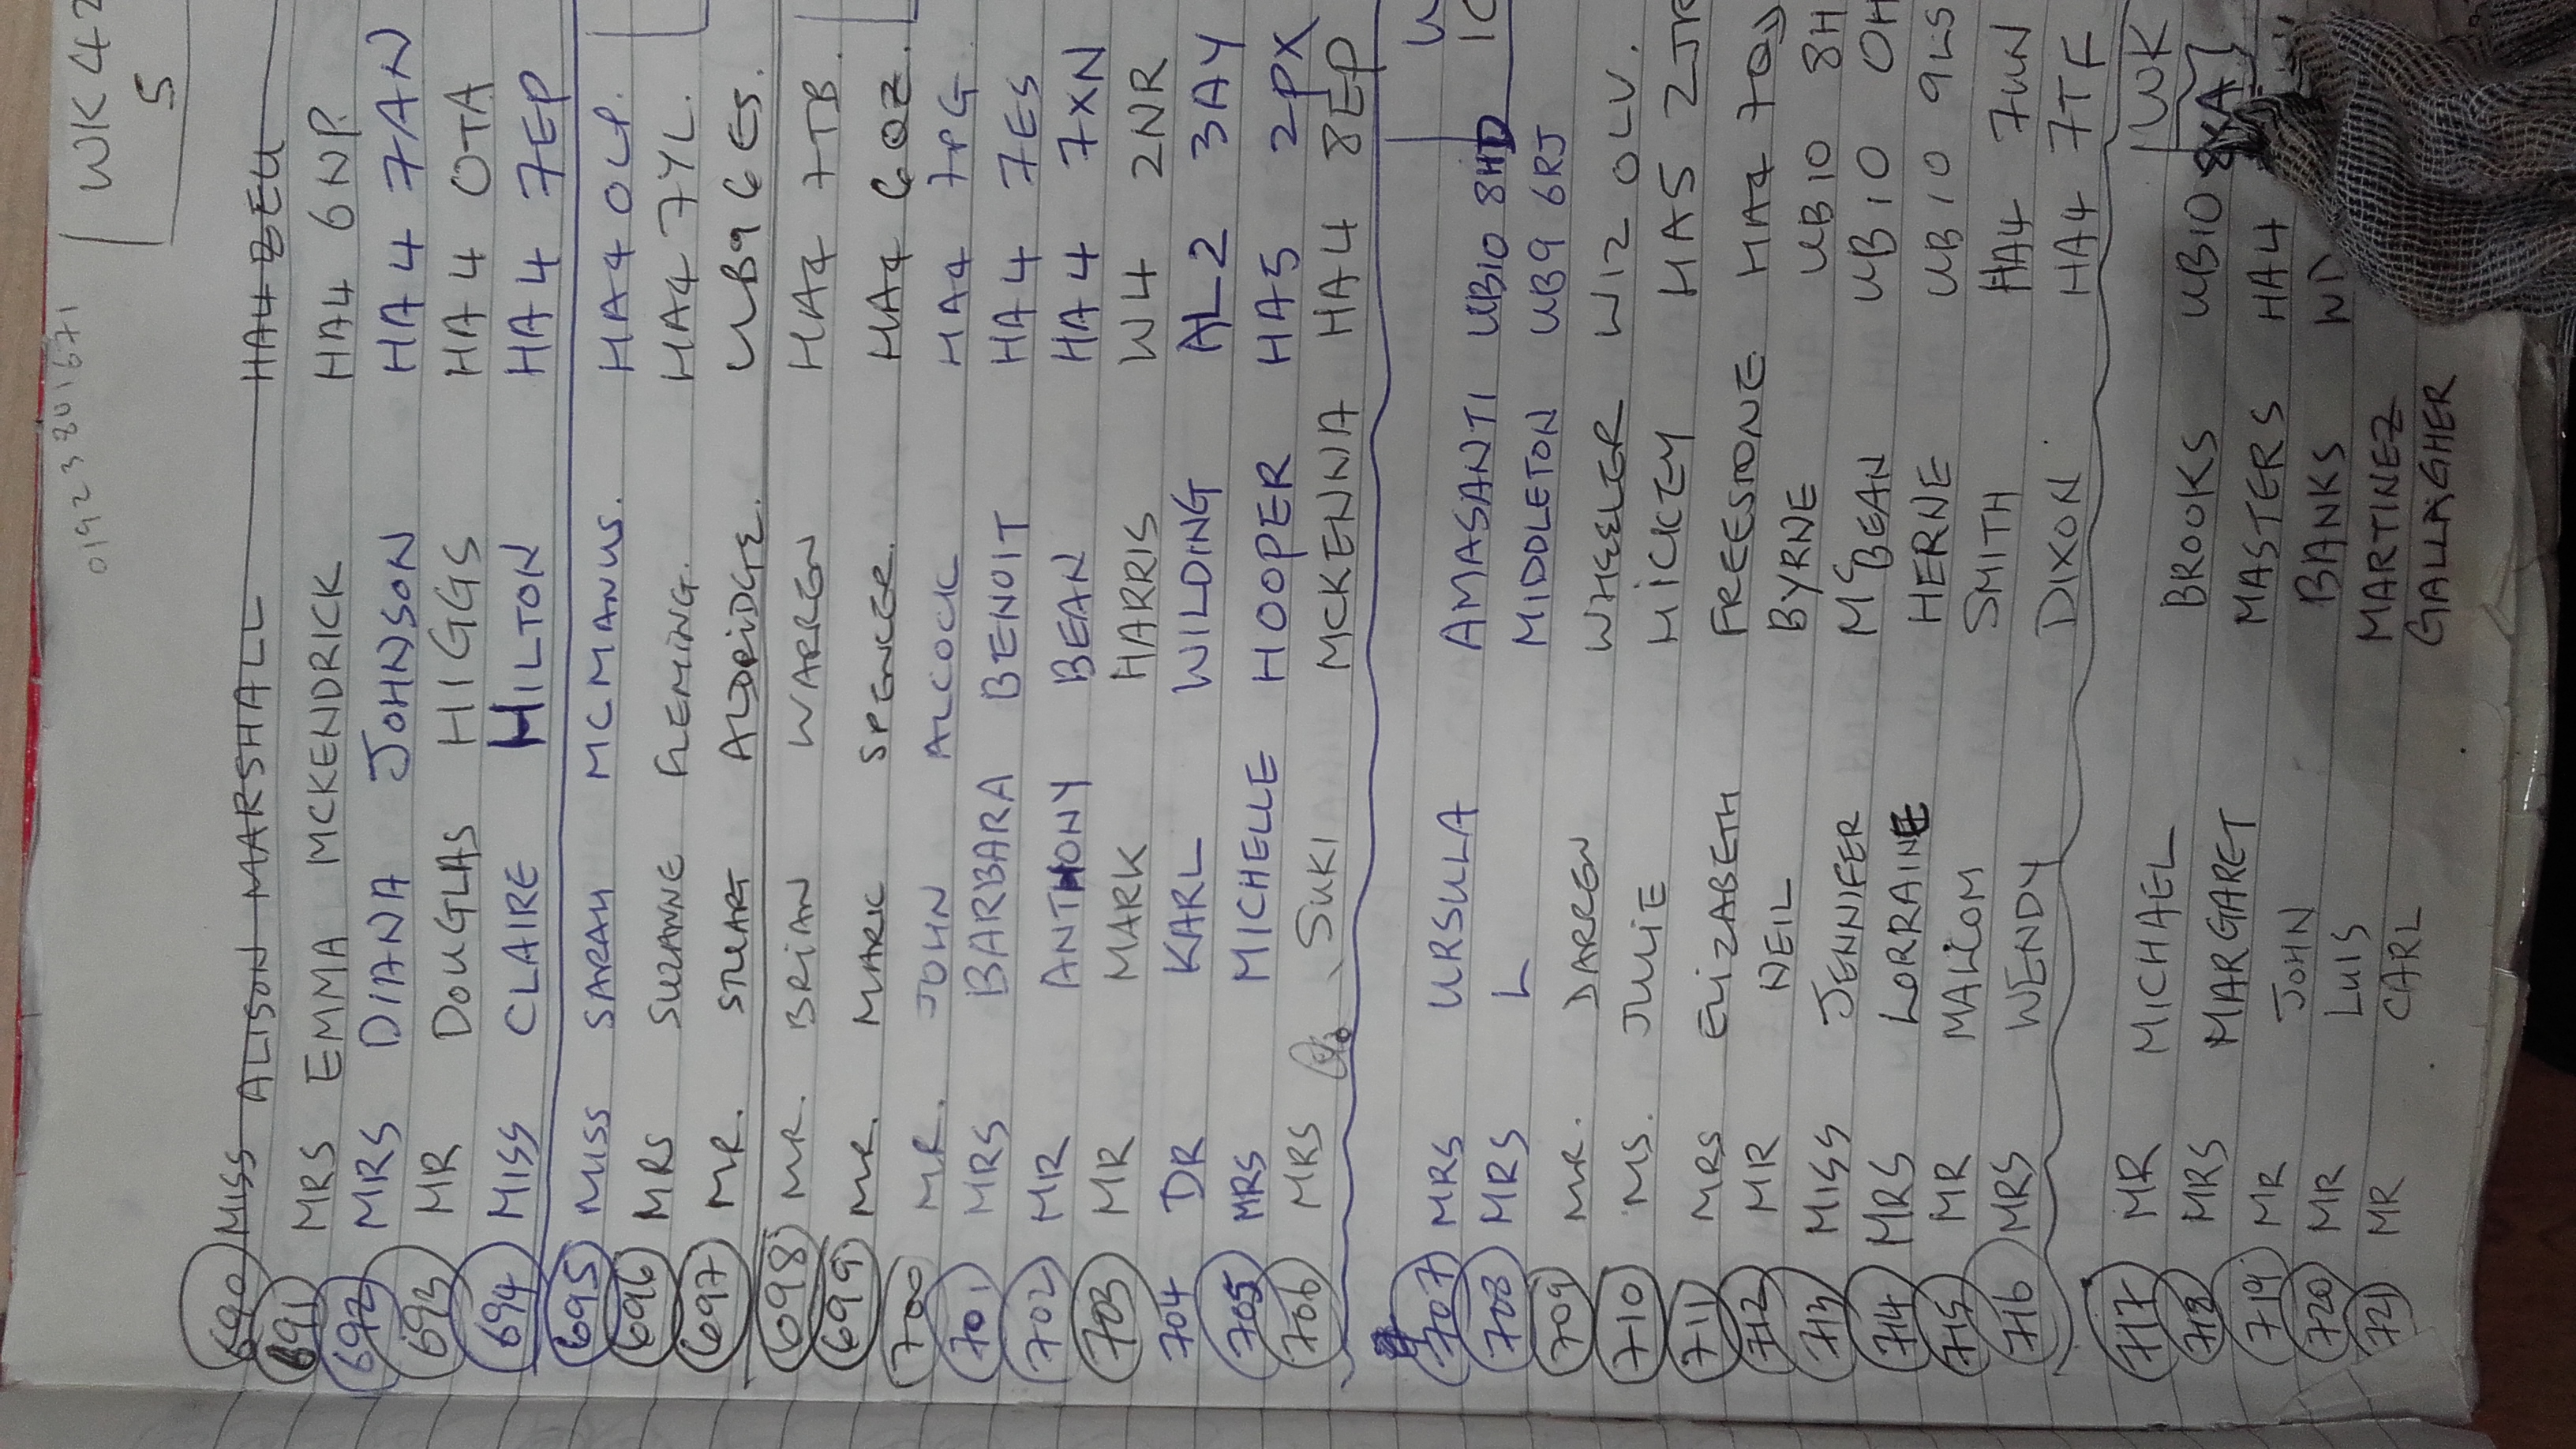 01923 801671
WK 42
5
690 MISS ALISON MARSHALL HA4 ZEU
691 MRS EMMA MCKENDRICK HA4 6NP.
692 MRS DIANA JOHNSON HA4 7AN
693 MR DOUGLAS HIGGS HA4 0TA
694 MISS CLAIRE HILTON HA4 7EP
695 MISS SARAH MCMANUS. HA4 0LP.
696 MRS SUZANNE FLEMING. HA4 7YL.
697 MR. STUART ALDRIDGE. UB9 6ES.
698 MR. BRIAN WARREN HA4 7TB.
699 MR. MARK SPENCER. HA4 6QZ.
700 MR. JOHN ALCOCK HA4 7PG
701 MRS BARBARA BENOIT HA4 7ES
702 MR ANTHONY BEAN HA4 7XN
703 MR MARK HARRIS W4 2NR
704 DR KARL WILDING AL2 3AY
705 MRS MICHELLE HOOPER HA5 2PX
706 MRS SUKI MCKENNA HA4 8EP
707 MRS URSULA AMASANTI UB10 8HD
708 MRS L MIDDLETON UB9 6RJ
709 MR. DARREN WHEELER W12 0LV.
710 MS. JULIE HICKEY HA5 2JR
711 MRS ELIZABETH FREESTONE HA4 7QD
712 MR NEIL BYRNE UB10 8H
713 MISS JENNIFER McBEAN UB10 0H
714 MRS LORRAINE HERNE UB10 9LS
715 MR MALCOM SMITH HA4 7UN
716 MRS WENDY DIXON HA4 7TF
WK
717 MR MICHAEL BROOKS UB10 8XA
718 MRS MARGARET MASTERS HA4
719 MR JOHN BANKS WD
720 MR LUIS MARTINEZ
721 MR CARL GALLAGHER